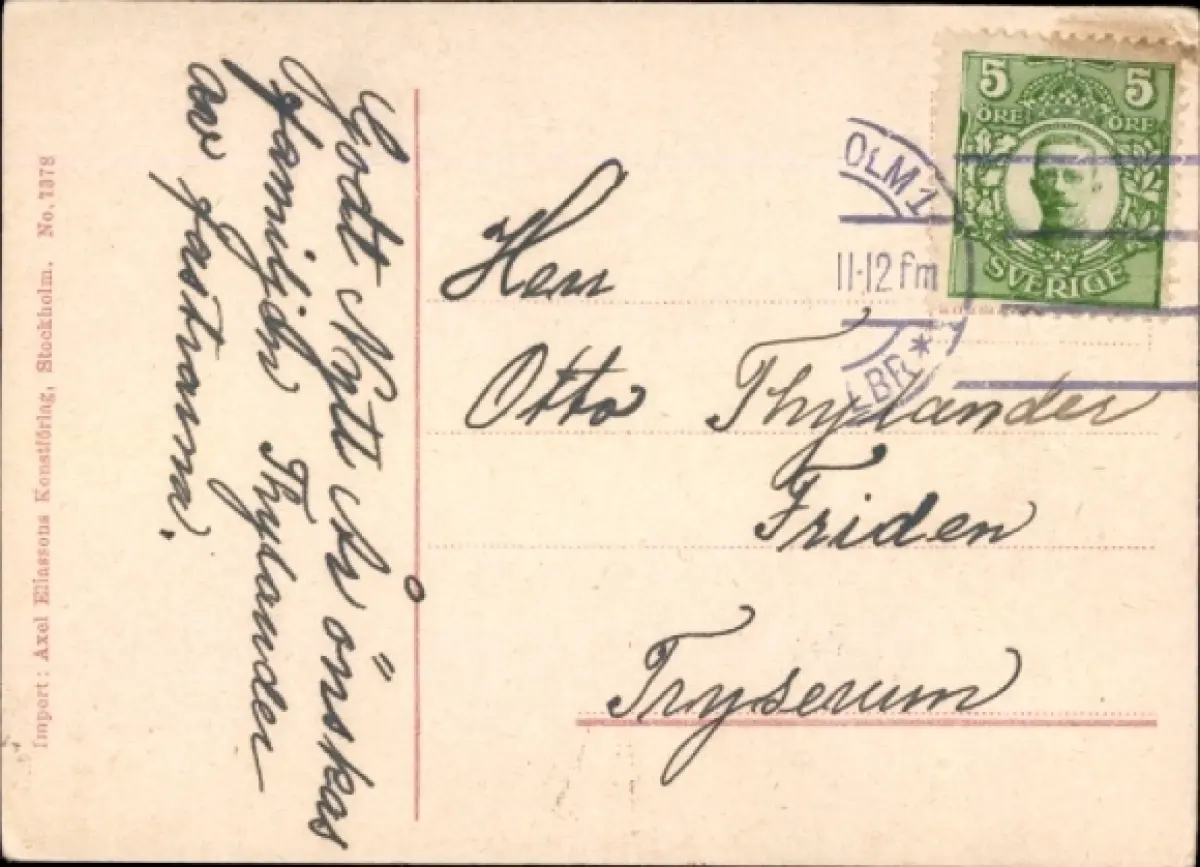 Godt Nytt År önskas
familjen Thylander
av fastrarna.
Herr
Otto Thylander
Friden
Tryserum
5 5
ÖRE ÖRE
SVERIGE
OLM 1
11-12 fm
LBR *
Import: Axel Eliassons Konstförlag, Stockholm. No. 7378